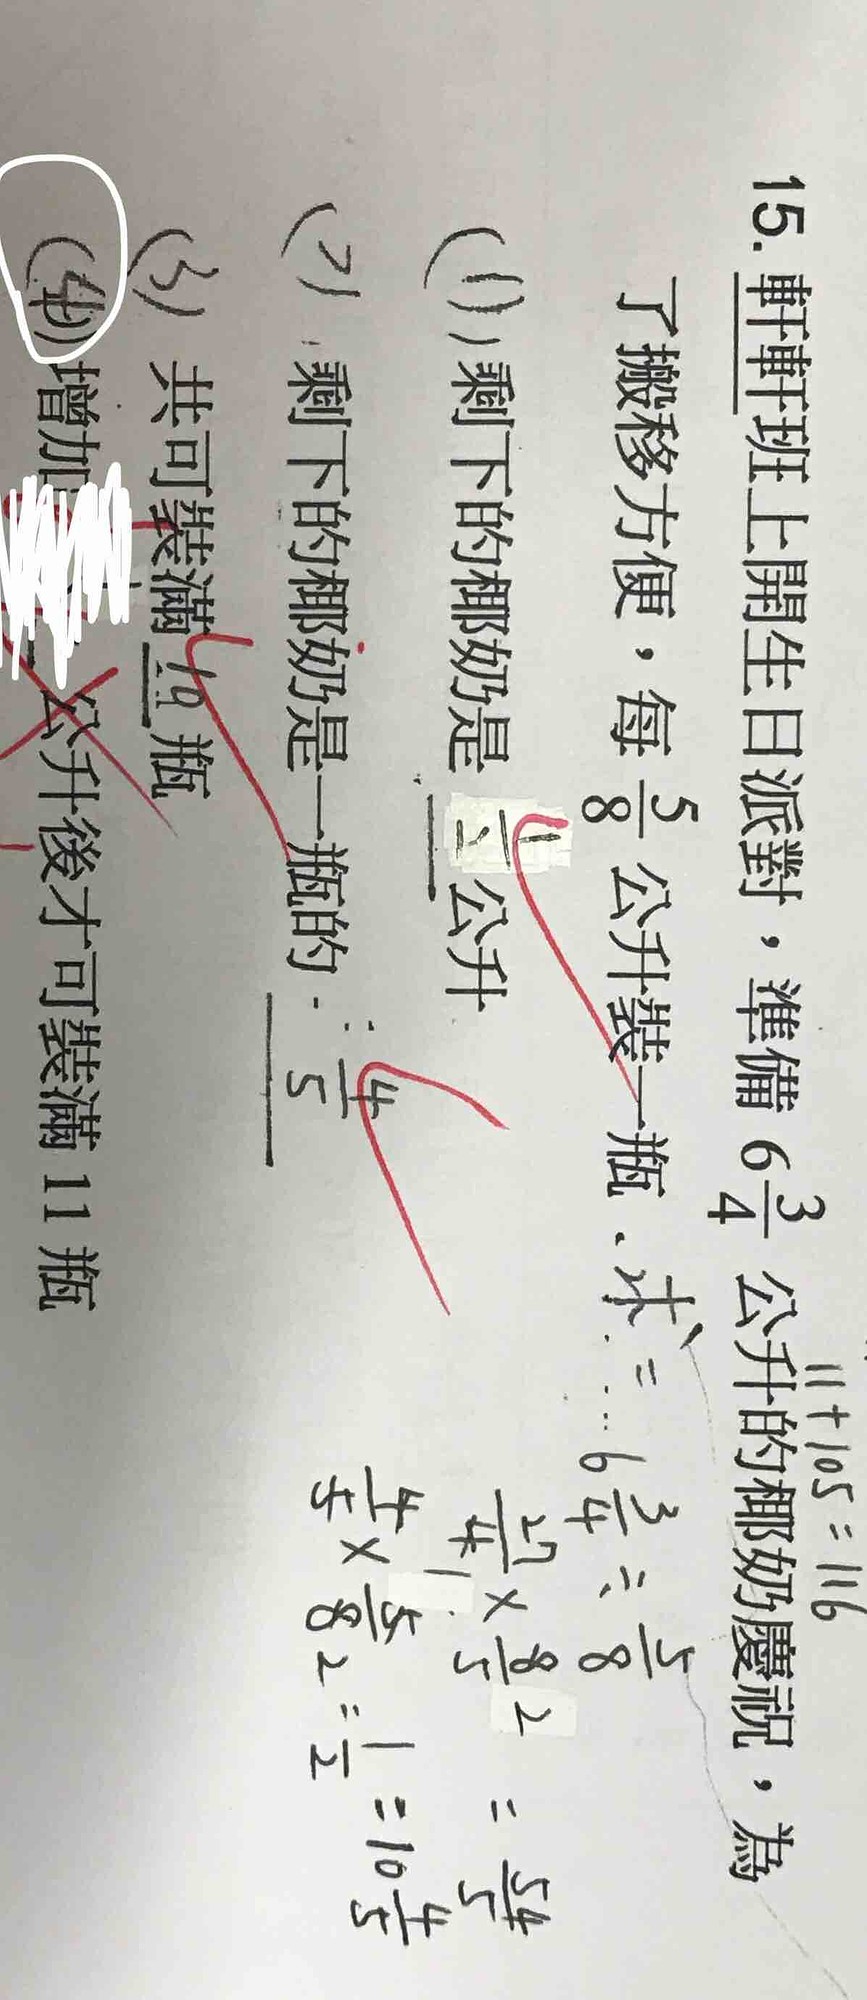 11+105=116
15. 軒軒班上開生日派對，準備 6 3/4 公升的椰奶慶祝，為
了搬移方便，每 5/8 公升裝一瓶、求=... 6 3/4 ÷ 5/8
(1)、剩下的椰奶是 1/2 公升
27/4 × 8/5 2 = 54/5
(2)、剩下的椰奶是一瓶的 4/5
4/5 × 5/8 2 = 1/2 = 10 4/5
(3) 共可裝滿 10 瓶
(4) 增加 公升後才可裝滿 11 瓶